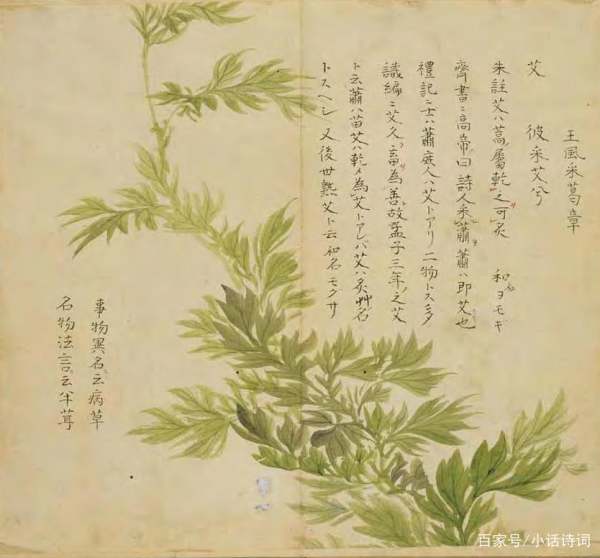 王風采葛章
艾 彼采艾兮
朱註艾ハ蒿屬乾之可灸 和名ヨモキ
齊書ニ高帝曰詩人采蕭蕭ハ即艾也
禮記ニ士ハ蕭庶人ハ艾トアリ二物トス多
識編ニ艾久畜為善故孟子三年之艾
ト云蕭ハ苗艾ハ乾メ為艾トアレバ艾ハ灸艸名
トスヘシ 又後世熟艾ト云和名モクサ
事物異名ニ云病草
名物法言ニ云
百家号/小话诗词